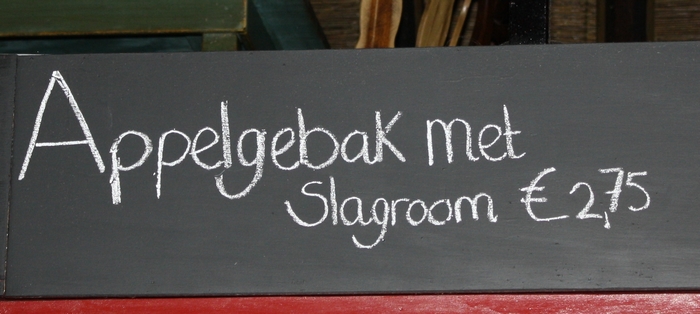 Appelgebak met
Slagroom € 2,75